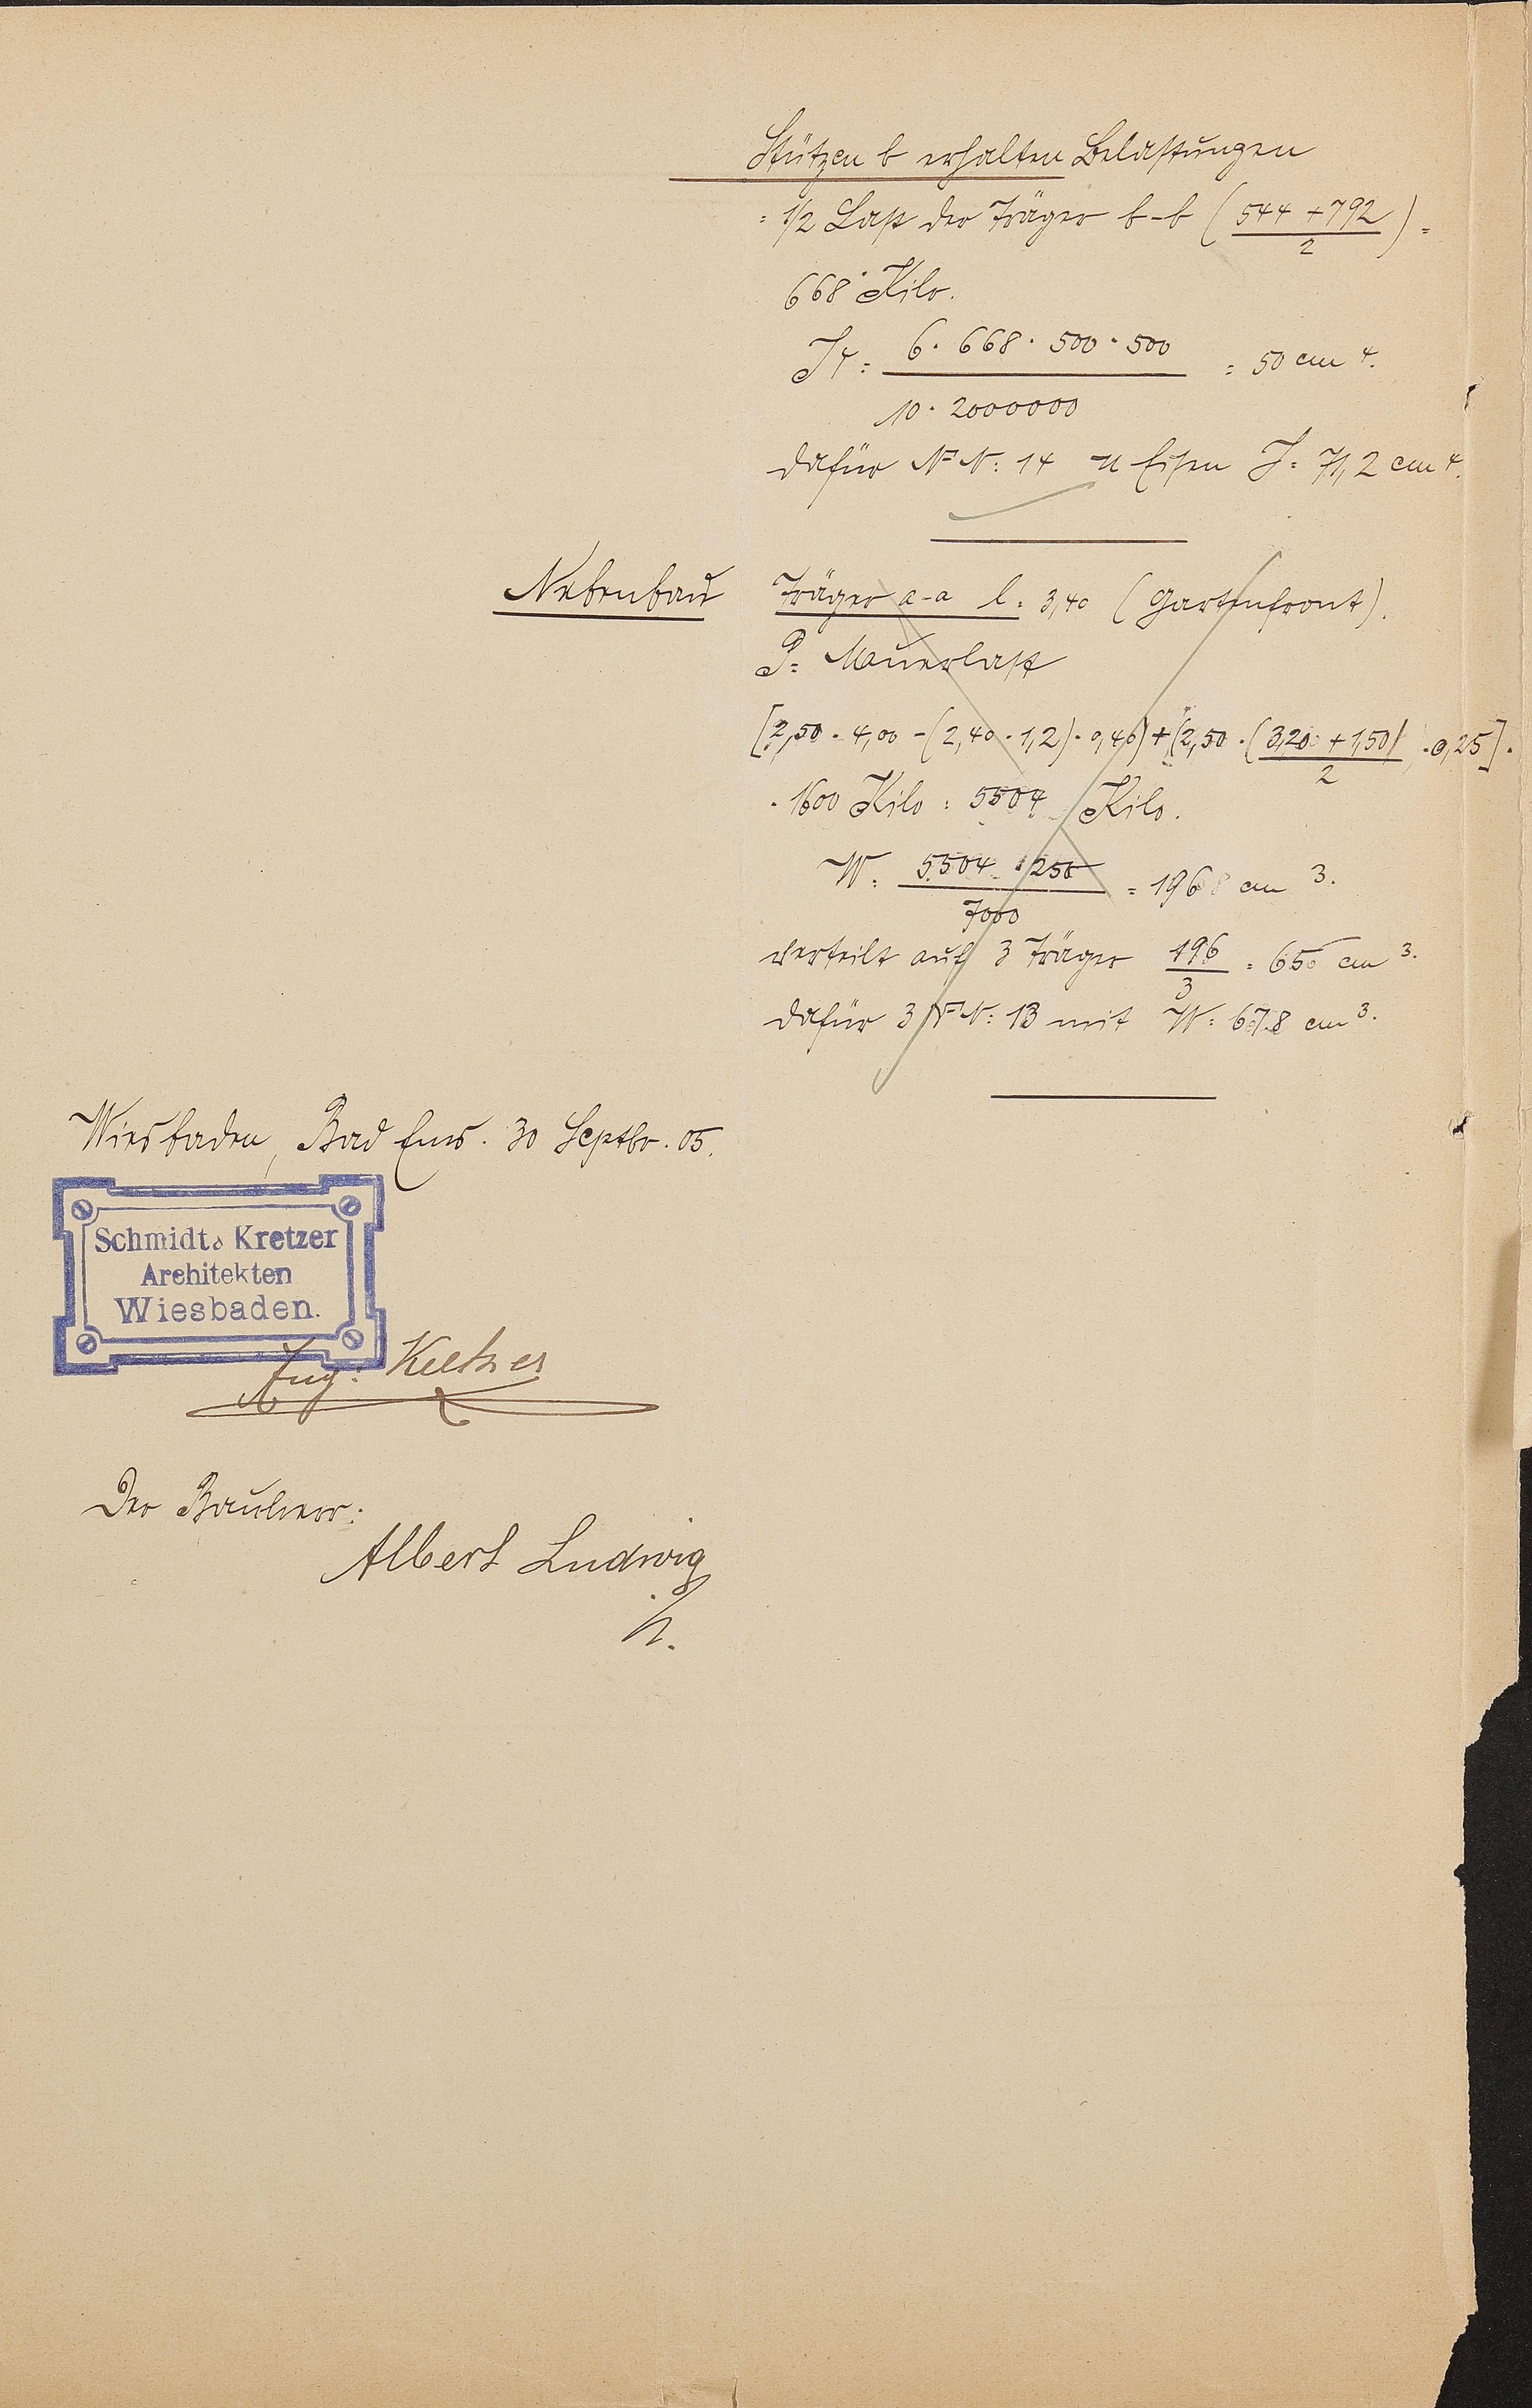 Stützen b erhalten Belastungen
= 1/2 Last der Träger b-b ( 544 + 792 / 2 ) =
668 Kilo.
J4 = 6 · 668 · 500 · 500 / 10 · 2000000 = 50 cm 4.
dafür N.P. N: 14 U Eisen J = 71,2 cm 4.
Nebenbau
Träger a-a l = 3,40 (Gartenfront).
P = Mauerlast
[2,50 · 4,00 - (2,40 · 1,2) · 0,40) + (2,50 · ( 3,20 + 1,50 / 2 ) · 0,25] ·
· 1600 Kilo = 5504 Kilo.
W = 5504 · 250 / 7000 = 196 cm 3.
verteilt auf 3 Träger 196 / 3 = 65 cm 3.
dafür 3 N.P. N: 13 mit W = 67.8 cm 3.
Wiesbaden, Bad Ems. 30 Septbr. 05.
Schmidt & Kretzer
Architekten
Wiesbaden.
Aug: Kretzer
Der Bauherr:
Albert Ludwig